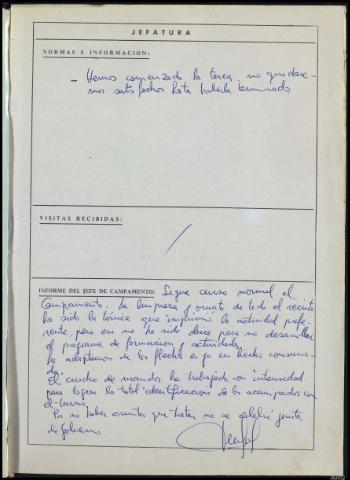 JEFATURA
NORMAS E INFORMACION:
- Hemos comenzado la tarea, no quedare-
mos satisfechos hasta haberla terminado
VISITAS RECIBIDAS:
INFORME DEL JEFE DE CAMPAMENTO: Sigue curso normal el
Campamento. La limpieza y ornato de todo el recinto
ha sido la tónica que la actividad prefe-
rente, pero eso no ha sido para no desarrollar
el programa de formación y actividades.
La adaptación de los flechas es ya un hecho consuma-
do.
El cuadro de mandos ha trabajado con intensidad
para lograr la total identificación de los acampados con
el
Por no haber asuntos que tratar no se celebró junta
de Gobierno